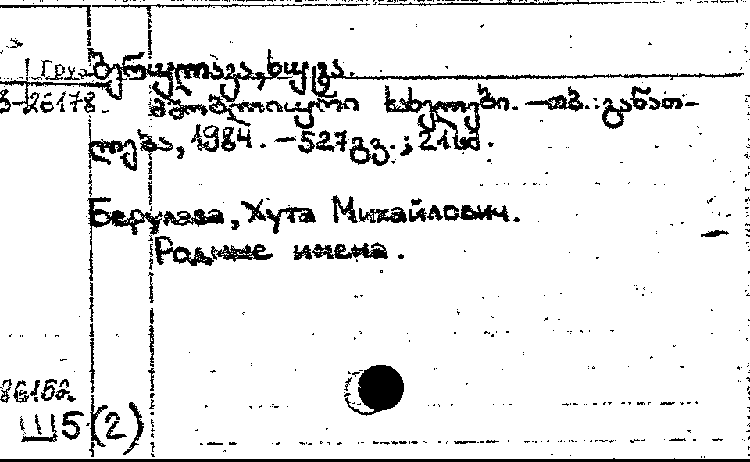 Груз
ბერულავა, ხუტა.
В-26178.
მშობლიური სახელები. – თბ.: განათ-
ლება, 1984. – 527 გვ.; 21 სმ.
Берулава, Хута Михайлович.
Родные имена.
86152
Ш5(2)